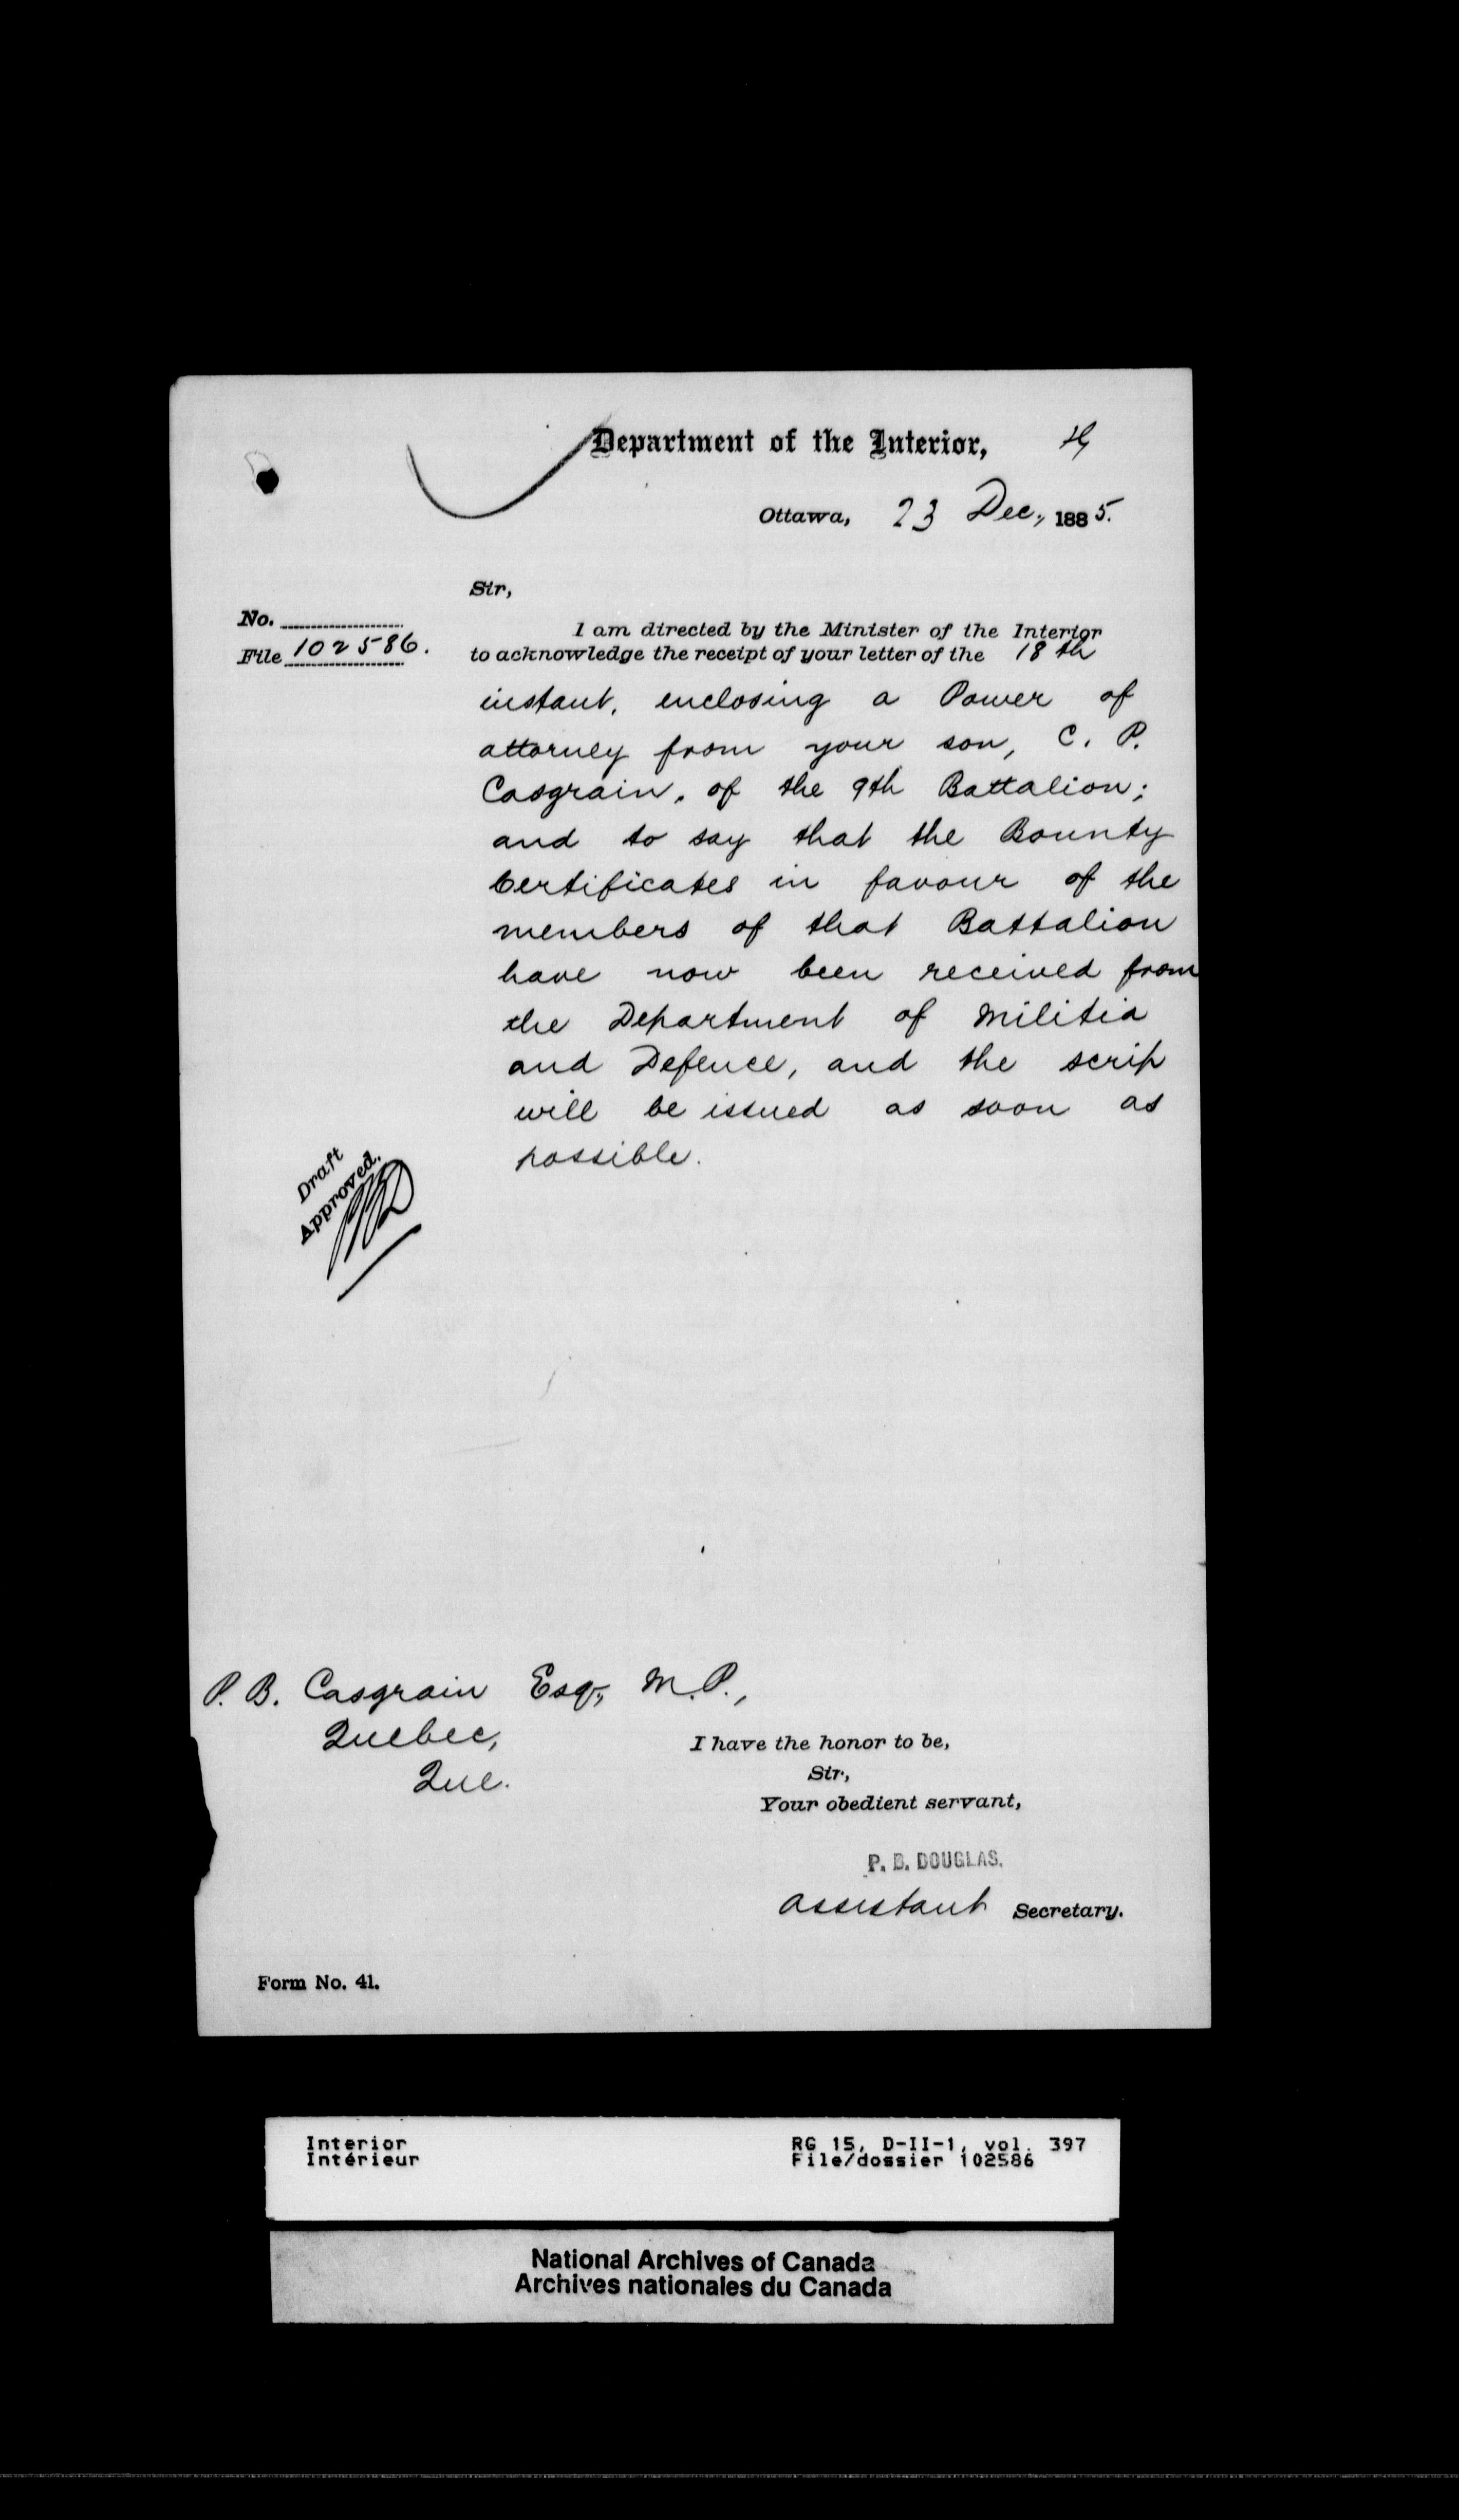 Department of the Interior,
Ottawa, 23 Dec., 1885.
Sir,
No.
File 102586.
I am directed by the Minister of the Interior
to acknowledge the receipt of your letter of the 18th
instant, enclosing a Power of
attorney from your son, C. P.
Casgrain, of the 9th Battalion;
and to say that the Bounty
Certificates in favour of the
members of that Battalion
have now been received from
the Department of Militia
and Defence, and the scrip
will be issued as soon as
possible.
Draft
Approved.
P. B. Casgrain Esq., M.P.,
Quebec,
Que.
I have the honor to be,
Sir,
Your obedient servant,
P. B. DOUGLAS.
Assistant Secretary.
Form No. 41.
Interior RG 15, D-II-1, vol. 397
Intérieur File/dossier 102586
National Archives of Canada
Archives nationales du Canada